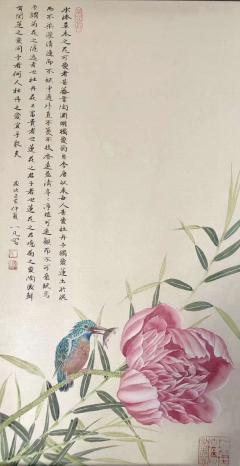 水陸草木之花可愛者甚蕃晉陶淵明獨愛菊自李唐以来世人甚愛牡丹予獨愛蓮之出淤泥
而不染濯清漣而不妖中通外直不蔓不枝香遠益清亭亭淨植可遠觀而不可褻玩焉
予謂菊花之隱逸者也牡丹花之富貴者也蓮花之君子者也噫菊之愛陶後鮮
有聞蓮之愛同予者何人牡丹之愛宜乎衆矣
仲夏